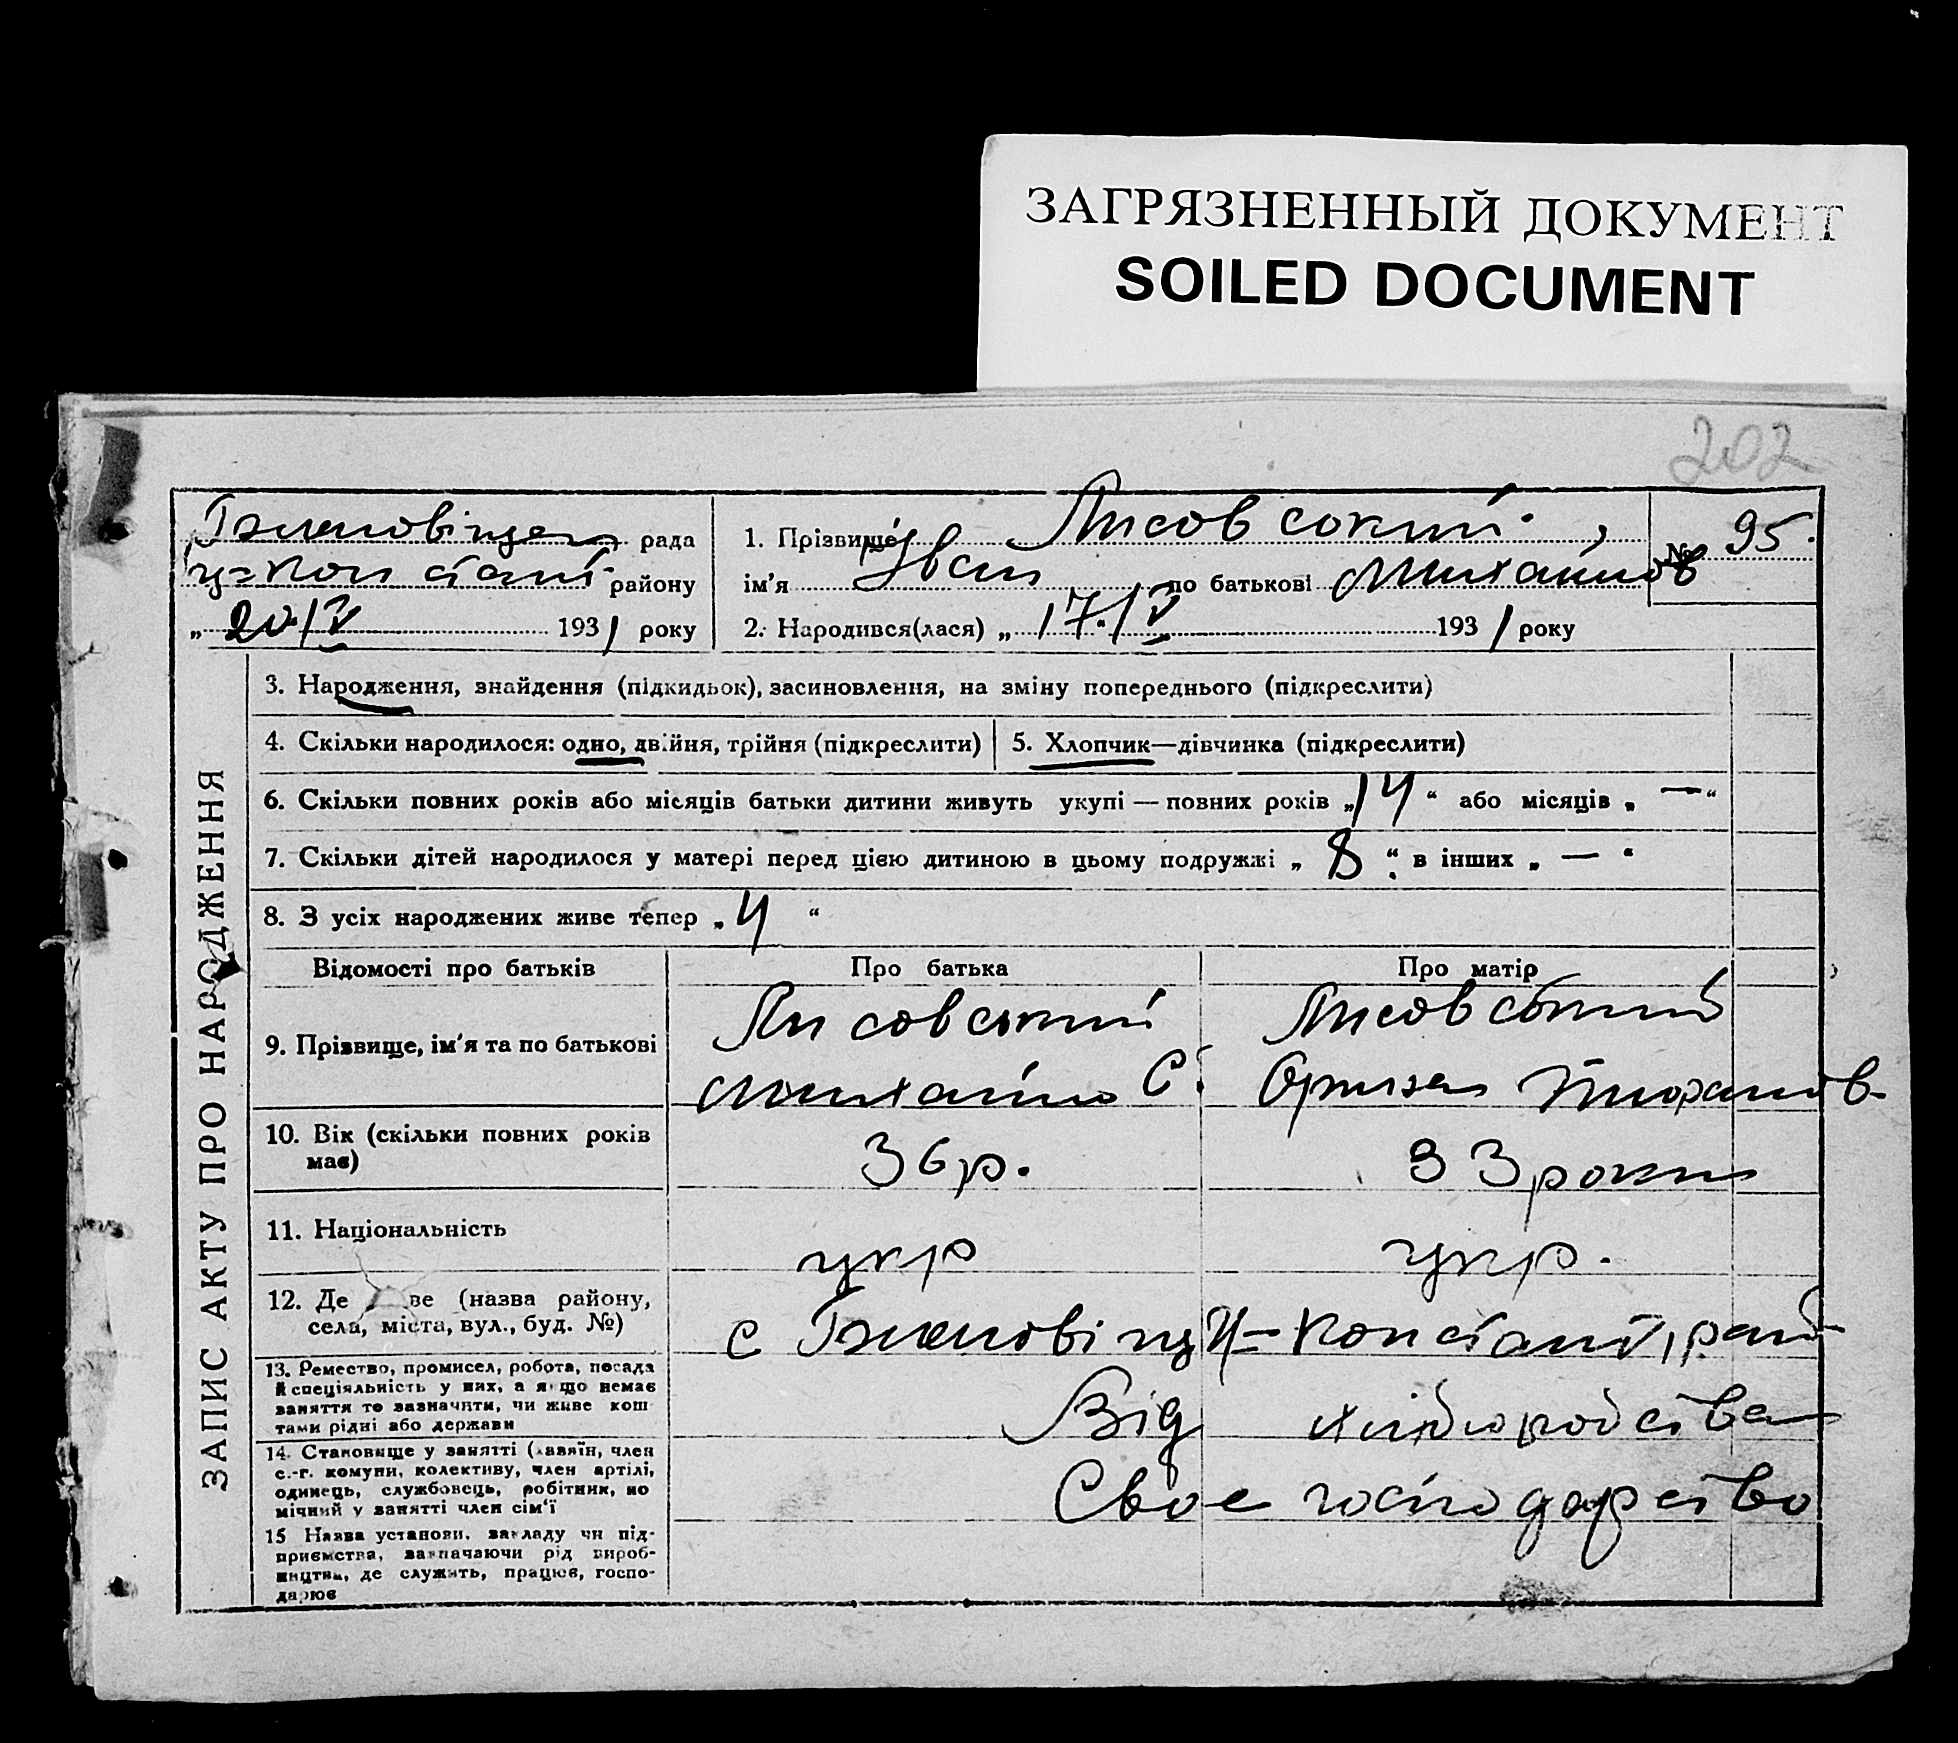 ЗАГРЯЗНЕННЫЙ ДОКУМЕНТ
SOILED DOCUMENT
202
рада
району
„ 20/V 1931 року
1. Прізвище Лисовський
ім'я Іван по батькові Михайлов
№ 95.
2. Народився(лася) „ 17/V 1931 року
ЗАПИС АКТУ ПРО НАРОДЖЕННЯ
3. Народження, знайдення (підкидьок), засиновлення, на зміну попереднього (підкреслити)
4. Скільки народилося: одно, двійня, трійня (підкреслити)
5. Хлопчик—дівчинка (підкреслити)
6. Скільки повних років або місяців батьки дитини живуть укупі — повних років „14“ або місяців „ — “
7. Скільки дітей народилося у матері перед цією дитиною в цьому подружжі „ 8 “ в інших „ — “
8. З усіх народжених живе тепер „ 4 “
Відомості про батьків Про батька Про матір
9. Прізвище, ім'я та по батькові
Лисовський
Михайло С.
Лисовський
10. Вік (скільки повних років
має)
36 р.
33 роки
11. Національність
укр
укр.
12. Де ве (назва району,
села, міста, вул., буд. №)
с
13. Ремество, промисел, робота, посада
й спеціяльність у них, а якщо немає
заняття то зазначити, чи живе кош
тами рідні або держави
Від хліборобства
14. Становище у занятті (хазяїн, член
с.-г. комуни, колективу, член артілі,
одинець, службовець, робітник, по
мічний у занятті член сім'ї
Своє господарство
15 Назва установи, закладу чи під-
приємства, зазначаючи рід вироб-
ництва, де служить, працює, госпо-
дарює